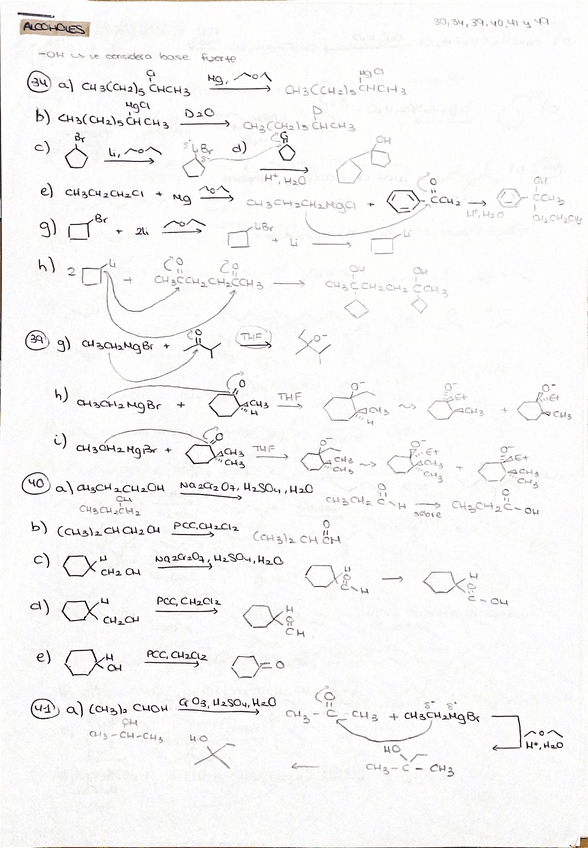 30,34, 39, 40,41 y 47
ALCOHOLES
-OH⁻ es se considera base fuerte
34 a) CH3(CH2)5CHCH3 Cl Mg, CH3(CH2)5CHCH3 MgCl
b) CH3(CH2)5CHCH3 MgCl D2O CH3(CH2)5CHCH3 D
c) Br Li, LiBr d) O H⁺, H2O OH
e) CH3CH2CH2Cl + Mg CH3CH2CH2MgCl + O CCH3 H⁺, H2O OH CCH3 CH2CH2CH3
g) Br + 2Li LiBr + Li Li
h) 2 Li + CH3CCH2CH2CCH3 O O CH3CCH2CH2CCH3 OH OH
39 g) CH3CH2MgBr + O THF O⁻
h) CH3CH2MgBr + O CH3 H THF O⁻ CH3 H O⁻ Et CH3 + O⁻ Et CH3
i) CH3CH2MgBr + O CH3 CH3 THF O⁻ CH3 CH3 O⁻ Et CH3 CH3 + O⁻ Et CH3 CH3
40 a) CH3CH2CH2OH Na2Cr2O7, H2SO4, H2O CH3CH2 C O H sobre CH3CH2C O OH
OH
CH3CH2CH2
b) (CH3)2CHCH2OH PCC, CH2Cl2 (CH3)2 CH CH O
c) H CH2OH Na2Cr2O7, H2SO4, H2O H C O H H C O OH
d) H CH2OH PCC, CH2Cl2 H O CH
e) H OH PCC, CH2Cl2 O
41 a) (CH3)2 CHOH CrO3, H2SO4, H2O CH3 - C - CH3 O + CH3CH2MgBr δ⁻ δ⁺
OH
CH3-CH-CH3 H⁺, H2O
HO HO
CH3 - C - CH3